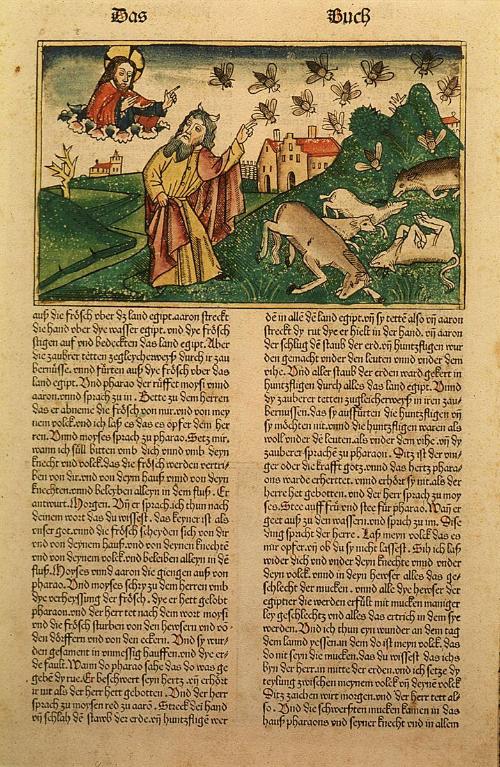 Das Buch
auß die frösch vber dz land egipt. aaron streckt
die hand vber dye wasser egipt. vnd dye frösch
stigen auf vnd bedeckten das land egipt. Aber
die zaubrer tetten zegleycherweyß durch ir zau
bernüsse. vnnd fürten auß dye frösch vber das
land egipt. Vnd pharao der rüffet moysi vnnd
aaron. vnnd sprach zu in. Bette zu dem herren
das er abneme die frösch von mir. vnd von mey
nem volck. vnd ich laß es das es opfer dem her
ren. Vnnd moyses sprach zu pharao. Setz mir.
wann ich süll bitten vmb dich vnnd vmb deyn
knecht vnd volck. das die frösch werden vertri
ben von dir. vnd von deym hauß vnnd von deyn
knechten. vnnd beleyben alleyn in dem fluß. Er
antwurt. Morgen. Vn er sprach. ich thun nach
deinem wort das du wissest. das keyner ist als
vnser got. vnnd die frösch scheyden sich von dir
vnd von deynem hauß. vnnd von deynen knechten
vnnd von deynem volck. vnd beleiben alleyn in dē
fluß. Moyses vnnd aaron die giengen auß von
pharao. Vnd moyses schry zu dem herren vmb
dye verheyssung der frösch. dye er hett gelobt
pharaon. vnd der herr tet nach dem wort moysi
vnd die frösch sturben von den hewsern vnd vō
den dörffern vnd von den eckern. Vnnd sy wur
den gesament in vnmessig hauffen. vnd dye er
de fault. Wann do pharao sahe das do was ge
geben dy rue. Er beschwert seyn hertz. vn erhört
ir nit als der herr hett gebotten. Vnd der herr
sprach zu moysen red zu aarō. Streck dei hand
vn schlah dē stawb der erde. vn huntzfligen wer
dē in alle dē land egipt. vn sy tettē also vn aaron
streckt dy rut dye er hielt in der hand. vn aaron
der schlug dē staub der erd. vn huntzfligen wur
den gemacht vnder den leuten vnnd vnder dem
vihe. Vnd aller staub der erden ward gekert in
huntzfligen durch alles das land egipt. Vnnd
dy zauberer tetten zugleicherweyß in iren zau
bernussen. das sy außfürten die huntzfligen vn
sy möchten nit. vnnd die huntzfligen waren als
woll vnder dē leuten. als vnder dem vihe. vn dy
zauberer sprachē zu pharaon. Ditz ist der vin
ger oder die krafft gotz. vnnd das hertz phara
ons warde erherttet. vnnd erhört sy nit. als der
herre het gebotten. vnd der herr sprach zu moy
ses. Stee auff frü vnd stee für pharao. Wan er
geet auß zu den wassern. vnd sprich zu im. Dise
ding spricht der herre. Laß meyn volck das es
mir opfer. vn ob du sy nicht lassest. Sih ich laß
wider dich vnd vnder deyn knechte vnnd vnder
deyn volck. vnnd in deyn hewser alles das ge-
schlecht der mucken. vnnd alle dye hewser der
egiptier die werden erfült mit mucken maniger
ley geschlechtz vnd alles das ertrich in dem sye
werden. Vnd ich thun eyn wunder an dem tag
dem lannd yessen. in dem do ist meyn volck. das
do nit seyn die mucken. das du wissest das ichs
byn der herr. in mitte der erden. vnd ich setze dy
teylung zwischen meynem volck vn deynē volck
Ditz zaichen wirt morgen. vnd der herr tett al-
so. Vnd die schwersten mucken kamen in das
hauß pharaons vnd seyner knecht vnd in allem